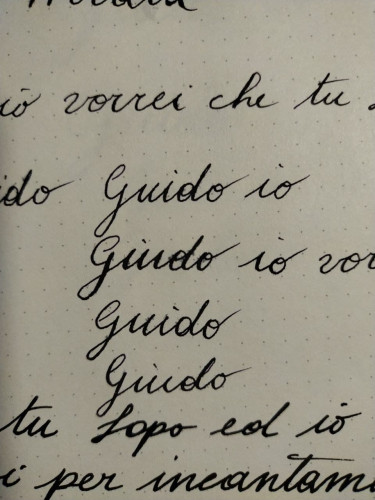 io vorrei che tu
Guido io
Guido io vor
Guido
Guido
tu Lapo ed io
i per incantam